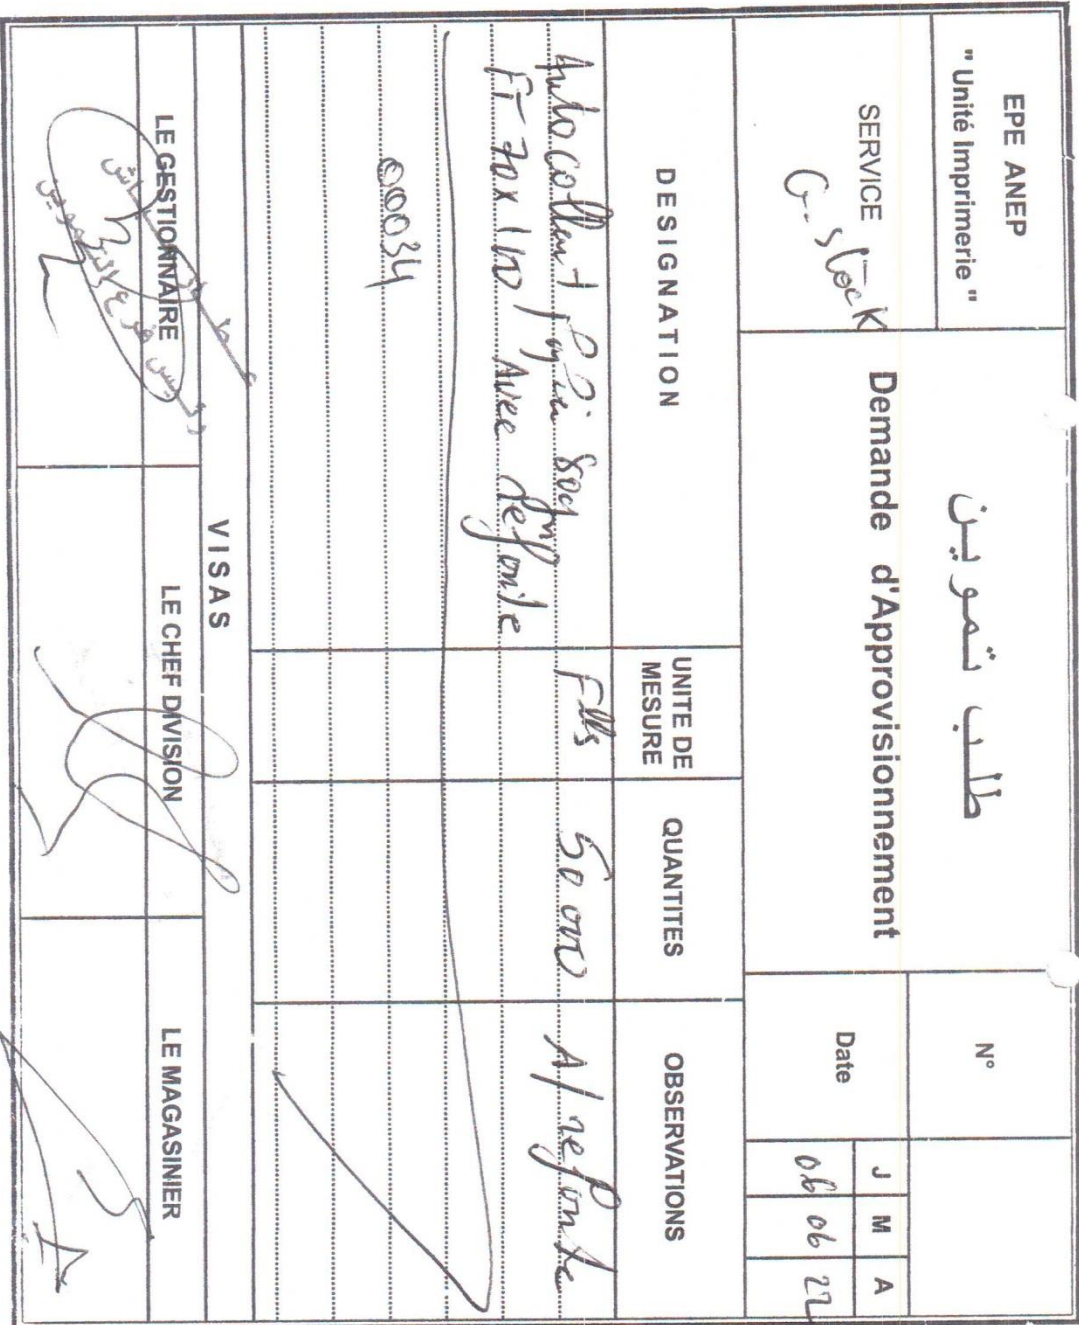 EPE ANEP
" Unité Imprimerie "
طلب تموين
Demande d'Approvisionnement
N°
SERVICE
G. stock
Date
J M A
06 06 22
DESIGNATION
UNITE DE MESURE
QUANTITES
OBSERVATIONS
Auto Collant 80g Flls 50 000 A/ refonte
FT 70x100 Avec refonte
00034
VISAS
LE GESTIONNAIRE
LE CHEF DIVISION
LE MAGASINIER